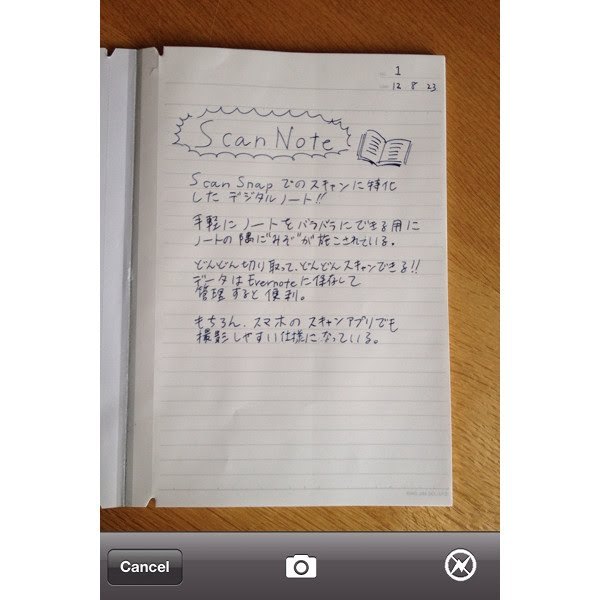 1
12 8 23
Scan Note
Scan Snap でのスキャンに特化
した デジタルノート!!
手軽に ノートを バラバラに できる用に
ノートの 隅に"みぞ"が 施こされている。
どんどん切り取って、どんどん スキャンできる!!
データは Evernoteに 保存して
管理すると 便利。
もちろん、スマホの スキャンアプリでも
撮影しやすい 仕様に なっている。
Cancel